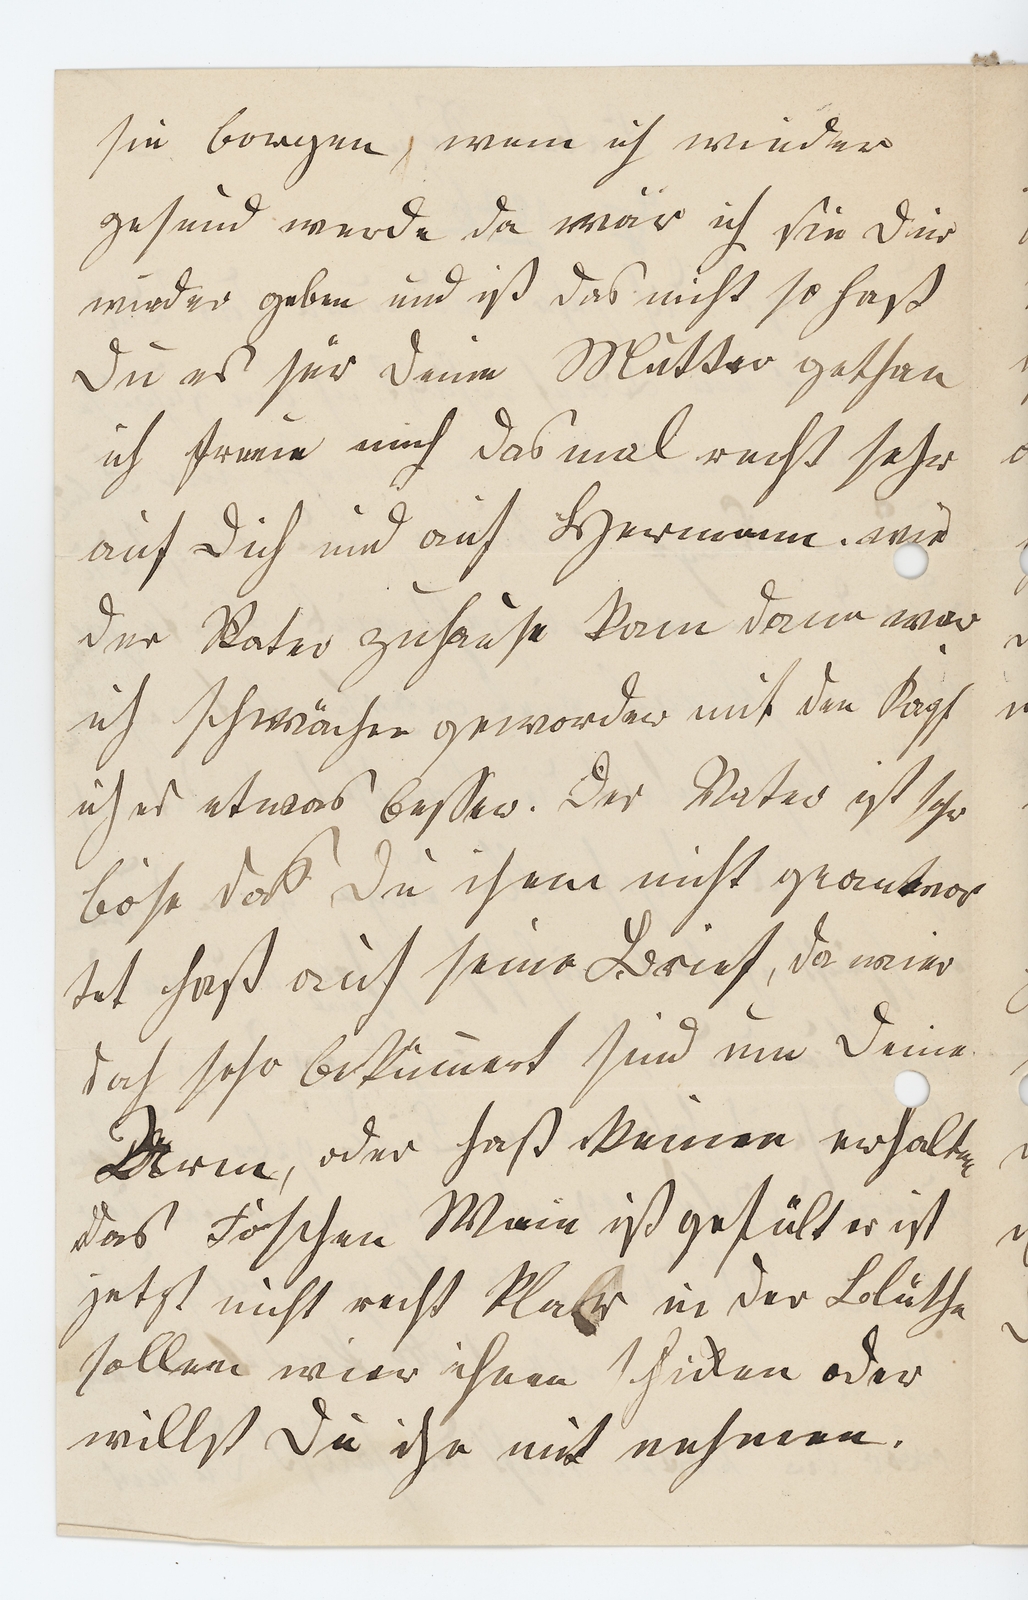 sie borgen, wenn ich wieder
gesund werde da wär ich sie Dier
wieder geben und ist das nicht so hast
Du es für Deine Mutter gethan
ich freue mich dasmal recht sehr
auf Dich und auf Hermann. wie
der Vater zuhause kam dann war
ich schwächer geworden mit den Kopf
ich es etwas besser. Der Vater ist sehr
böse daß Du ihm nicht geantwor
tet hast auf seine Brief, da wier
doch sehr bekümert sind um Deine
Arm, oder hast keinen erhalten
das Föschen Wein ist gefült er ist
jetzt nicht recht klahr in der Blüthe
sollen wier ihnen schicken oder
willst Du ihn mit nehmen.